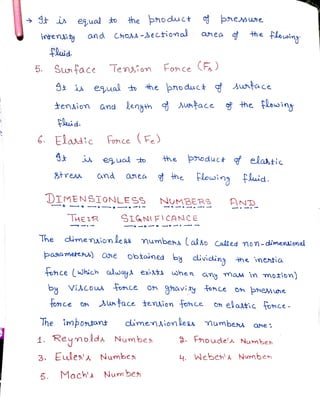 → It is equal to the product of pressure
intensity and cross-sectional area of the flowing
fluid.
5. Surface Tension Force (Fs)
It is equal to the product of surface
tension and length of surface of the flowing
fluid.
6. Elastic Force (Fe)
It is equal to the product of elastic
stress and area of the flowing fluid.
DIMENSIONLESS NUMBERS AND
THEIR SIGNIFICANCE
The dimensionless numbers (also called non-dimensional
parameters) are obtained by dividing the inertia
force (which always exists when any mass in motion)
by viscous force or gravity force or pressure
force or surface tension force or elastic force.
The important dimensionless numbers are:
1. Reynolds Number 2. Froude's Number
3. Euler's Number 4. Weber's Number
5. Mach's Number